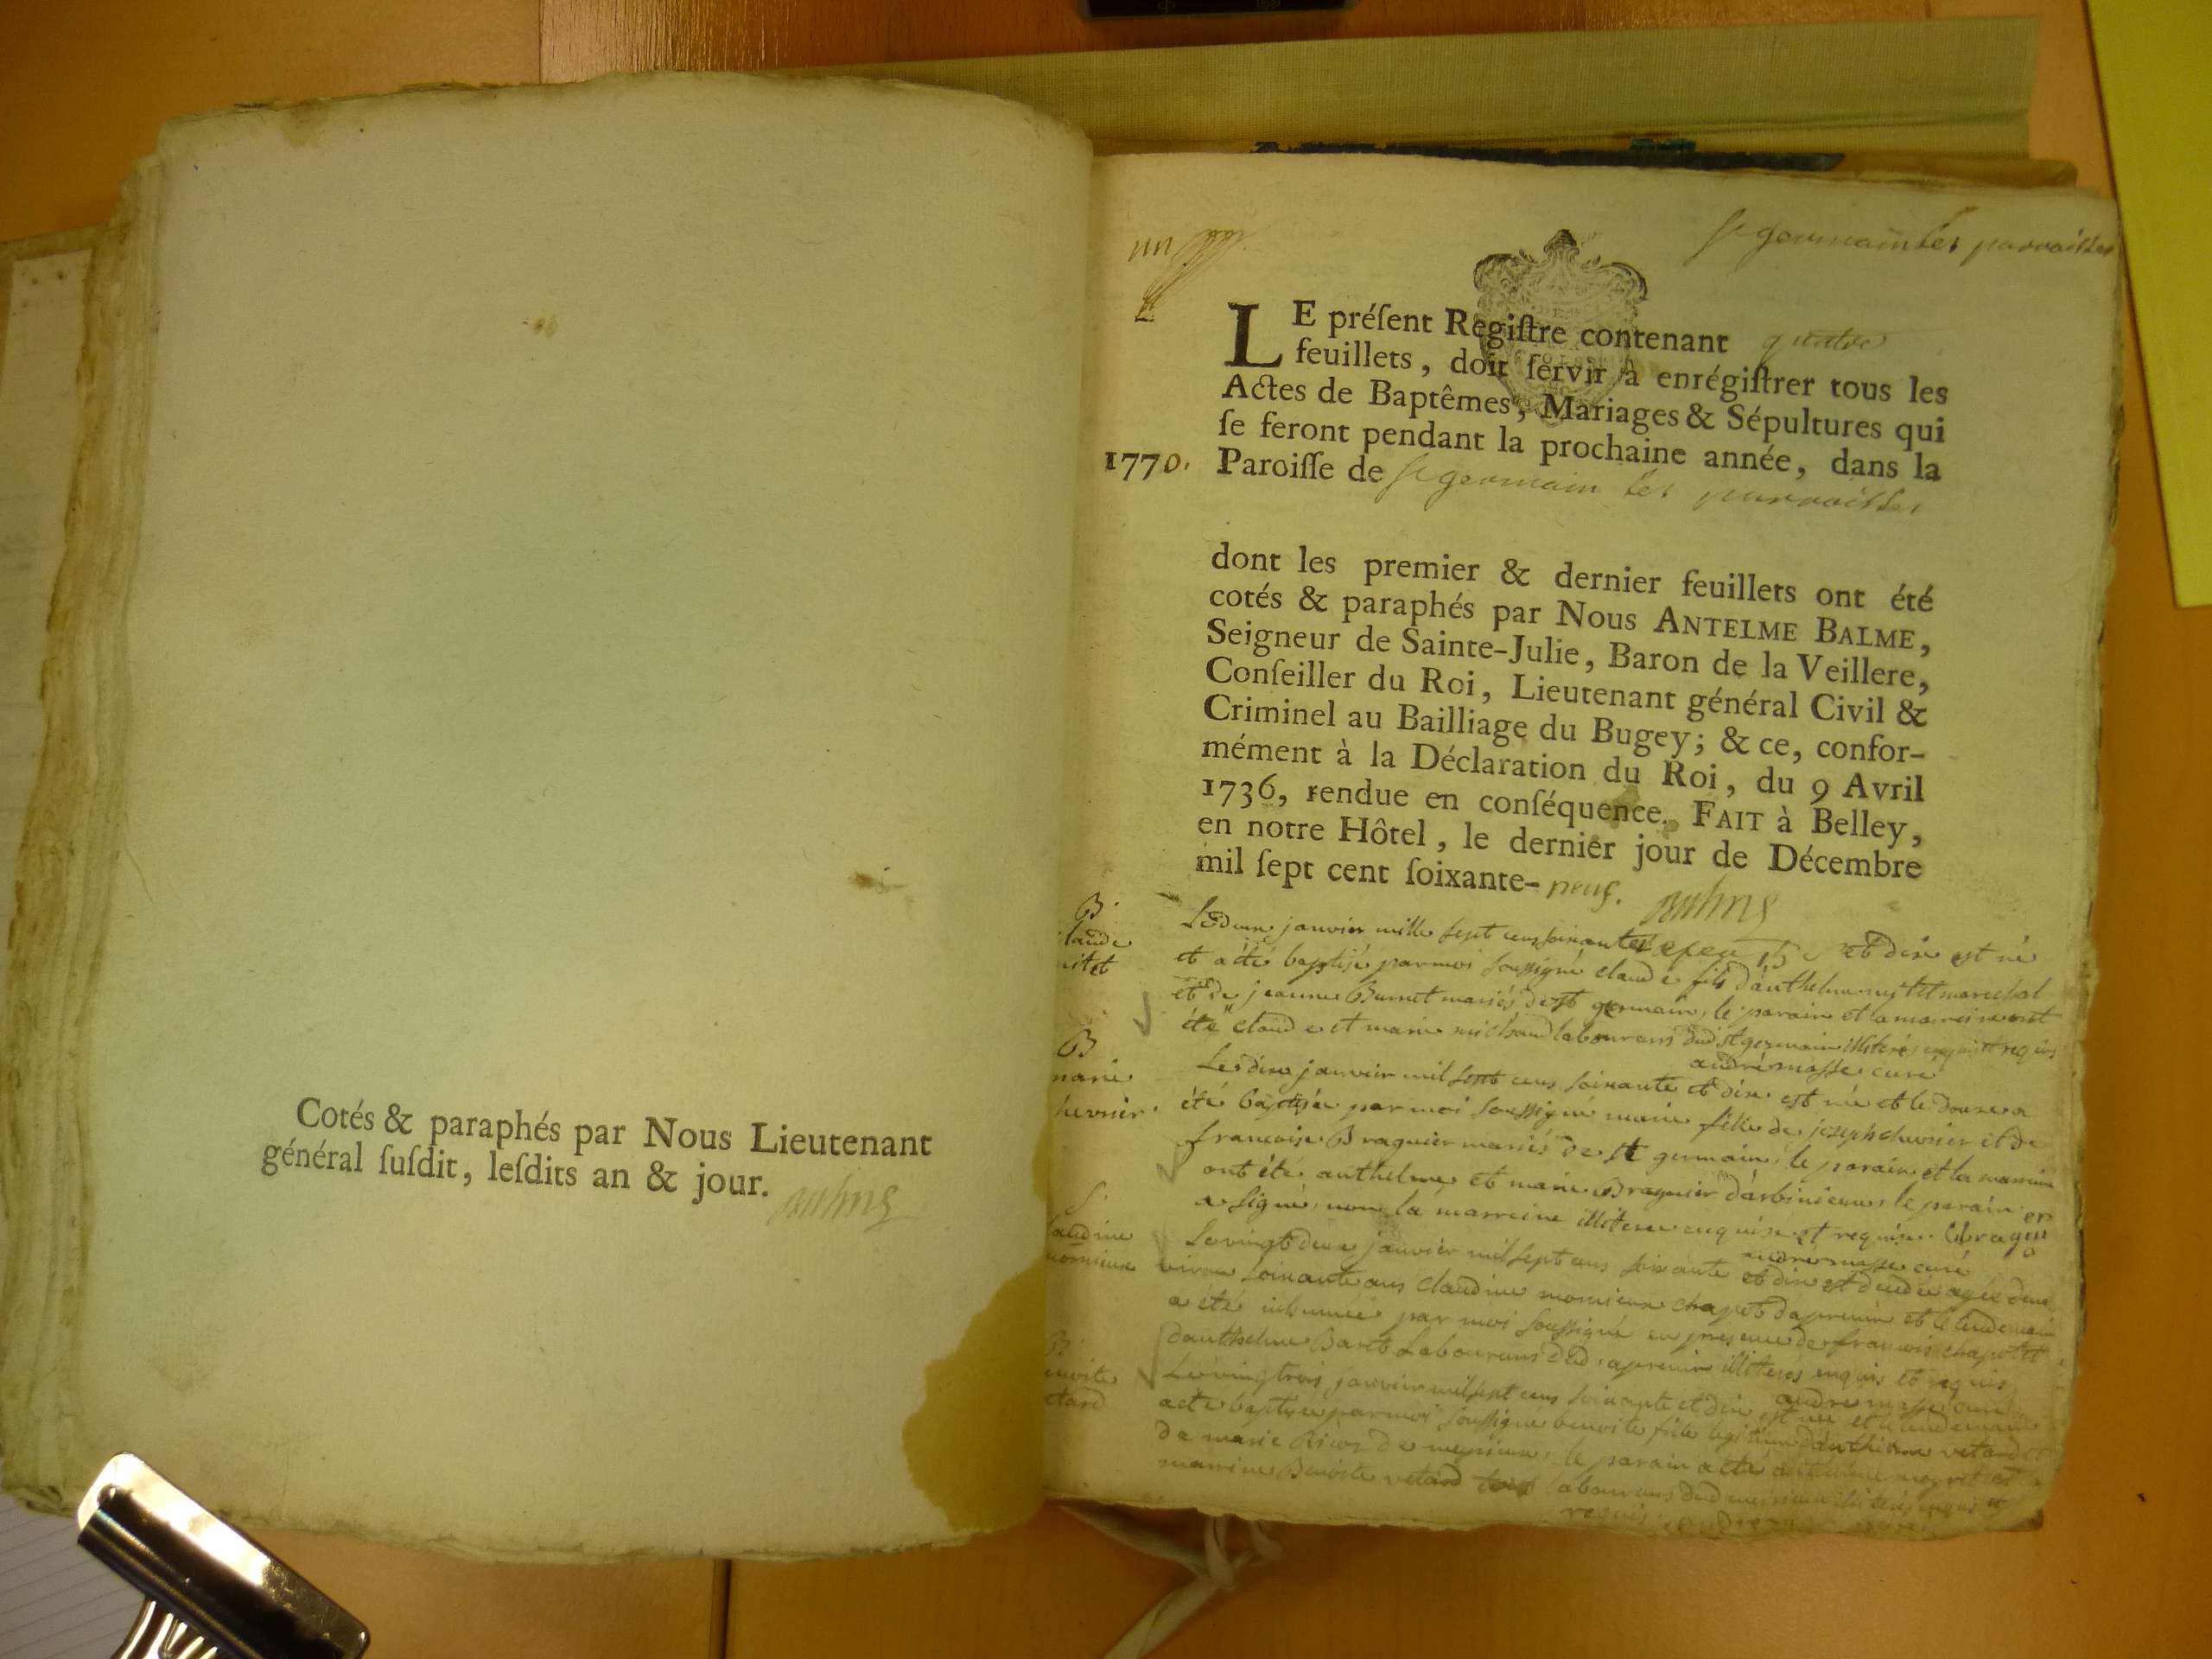 Cotés & paraphés par Nous Lieutenant
général ſuſdit, leſdits an & jour.
un
St germain les parroisses
LE préſent Regiſtre contenant quatre
feuillets, doit ſervir à enrégiſtrer tous les
Actes de Baptêmes, Mariages & Sépultures qui
ſe feront pendant la prochaine année, dans la
1770. Paroiſſe de St germain les parroisses
dont les premier & dernier feuillets ont été
cotés & paraphés par Nous ANTELME BALME,
Seigneur de Sainte-Julie, Baron de la Veillere,
Conſeiller du Roi, Lieutenant général Civil &
Criminel au Bailliage du Bugey; & ce, confor-
mément à la Déclaration du Roi, du 9 Avril
1736, rendue en conſéquence. FAIT à Belley,
en notre Hôtel, le dernier jour de Décembre
mil ſept cent ſoixante-neuf.
B
laude
itet
Le janvier mille sept cens soixante et dix est né
et a été baptisé par moi soussigné claude fils d'anthelme marechal
et de jeanne mariés de st germain, le parain et la mareine ont
été claude et marie michaud laboureurs dud st germain illiterés enquis et requis
andré masse curé
B
marie
hevrier
Le dix janvier mil sept cens soixante et dix est née et le douze a
été baptisée par moi soussigné marie fille de joseph chevrier et de
francoise Braguier mariés de st germain, le parain et la marreine
ont été anthelme et marie Braguier d'arbinieux le parain
a signé, non la marreine illiterée enquise et requise.
andré masse curé
S
laudine
Le vingt deux janvier mil sept cens soixante et dix est decedée agée d'en
viron soixante ans claudine chapot d'apremin et le lendemain
a été inhumée par moi soussigné en presence de francois chapot et
danthelme Baret Laboureurs dud. apremin illiterés enquis et requis
andré masse curé
B
enoite
etard
Le vingtrois janvier mil sept cens soixante et dix est née et le lendemain
a été baptisée par moi soussigné benoite fille legitime d'anthelme vetard et
de marie de le parain a été anthelme et
marrine Benoite vetard laboureurs dud illiterés enquis et
requis.